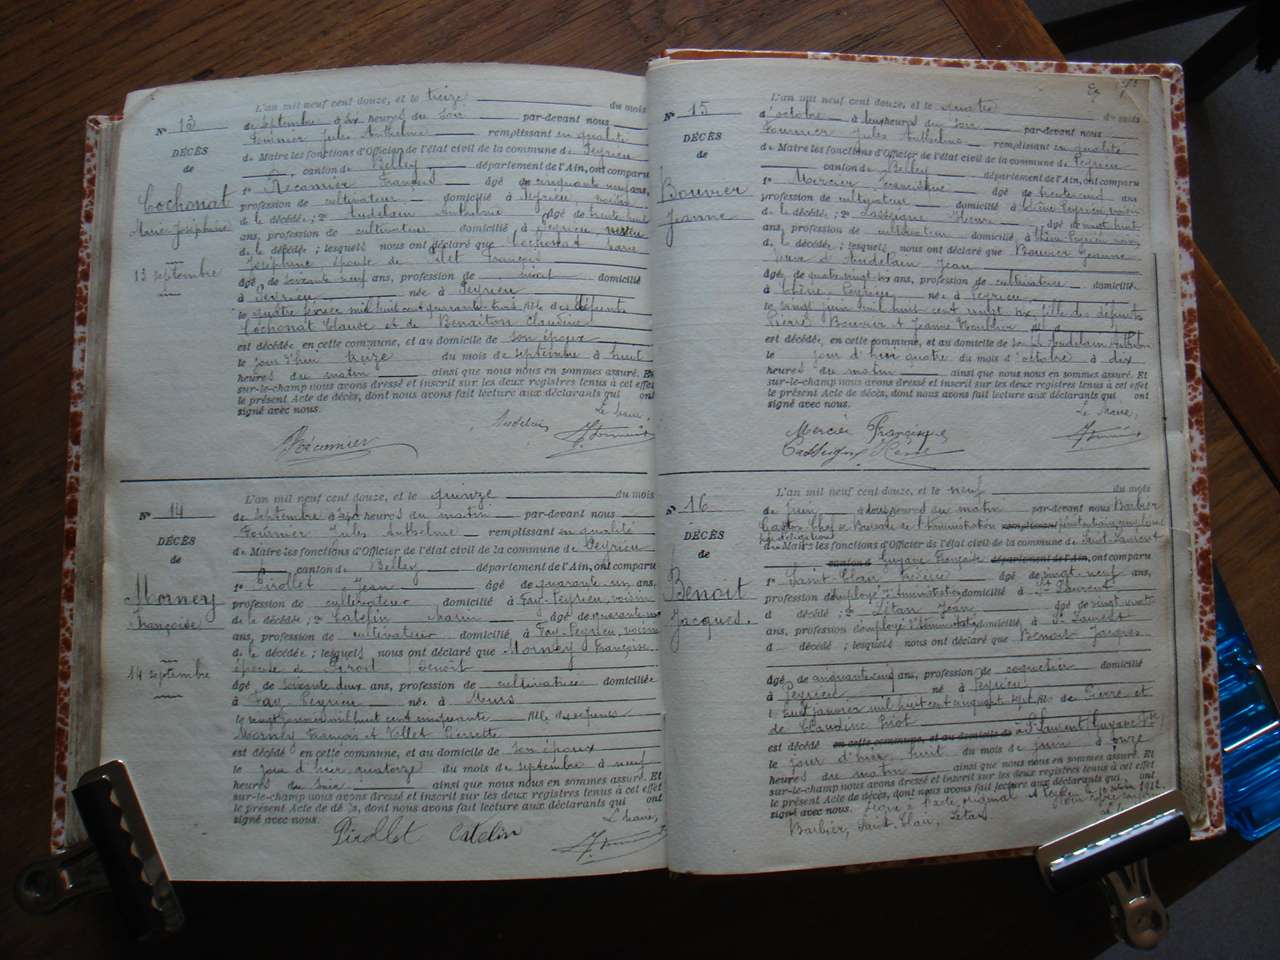 N° 13
DÉCÈS
de
Cochonat
Marie Joséphine
13 septembre
L'an mil neuf cent douze, et le treize du mois
de septembre à six heures du soir par-devant nous
Fournier Jules Anthelme remplissant en qualité
de Maire les fonctions d'Officier de l'état civil de la commune de Peyrieu
canton de Belley département de l'Ain, ont comparu
1° Récamier François âgé de cinquante neuf ans,
profession de cultivateur domicilié à Peyrieu, voisin
de la décédée; 2° Audelain Anthelme âgé de trente huit
ans, profession de cultivateur domicilié à Peyrieu, neveu
de la décédée; lesquels nous ont déclaré que Cochonat Marie
Joséphine épouse de François
âgée de soixante neuf ans, profession de domicilié
à Peyrieu née à Peyrieu
le quatre mil huit cent quarante trois fille des défunts
Cochonat Claude et de Benaiton Claudine
est décédée en cette commune, et au domicile de son époux
le jour d'hui treize du mois de septembre à huit
heures du matin ainsi que nous nous en sommes assuré. Et
sur-le-champ nous avons dressé et inscrit sur les deux registres tenus à cet effet
le présent Acte de décès, dont nous avons fait lecture aux déclarants qui ont
signé avec nous.
Le Maire,
Récamier Audelain
N° 14
DÉCÈS
de
Morney
Françoise
14 septembre
L'an mil neuf cent douze, et le quinze du mois
de septembre à heures du matin par-devant nous
Fournier Jules Anthelme remplissant en qualité
de Maire les fonctions d'Officier de l'état civil de la commune de Peyrieu
canton de Belley département de l'Ain, ont comparu
1° Pirollet Jean âgé de quarante un ans,
profession de cultivateur domicilié à Fay-Peyrieu, voisin
de la décédée; 2° Catelin Marin âgé de quarante
ans, profession de cultivateur domicilié à Fay-Peyrieu, voisin
de la décédée; lesquels nous ont déclaré que Morney Françoise
épouse de Benoît
âgée de soixante deux ans, profession de cultivatrice domiciliée
à Fay Peyrieu née à Murs
le vingt mil huit cent cinquante fille des défunts
Morney François et Vollet Pierrette
est décédé en cette commune, et au domicile de son époux
le jour d'hier quatorze du mois de septembre à neuf
heures du soir ainsi que nous nous en sommes assuré. Et
sur-le-champ nous avons dressé et inscrit sur les deux registres tenus à cet effet
le présent Acte de décès, dont nous avons fait lecture aux déclarants qui ont
signé avec nous.
Le Maire,
Pirollet Catelin
N° 15
DÉCÈS
de
Bouvier
Jeanne
L'an mil neuf cent douze, et le quatre du mois
d'octobre à heures du soir par-devant nous
Fournier Jules Anthelme remplissant en qualité
de Maire les fonctions d'Officier de l'état civil de la commune de Peyrieu
canton de Belley département de l'Ain, ont comparu
1° Mercier Françisque âgé de trente ans,
profession de cultivateur domicilié à Peyrieu, voisin
de la décédée; 2° Lasseigne Henri âgé de vingt huit
ans, profession de cultivateur domicilié à Peyrieu voisin
de la décédée; lesquels nous ont déclaré que Bouvier Jeanne
veuve d'Audelain Jean
âgée de quatre vingt six ans, profession de cultivatrice domiciliée
à Peyrieu née à Peyrieu
le vingt juin mil huit cent vingt six, fille des défunts
Pierre Bouvier et Jeanne
est décédée en cette commune, et au domicile de Audelain Anthelme
le jour d'hui quatre du mois d'octobre à dix
heures du matin ainsi que nous nous en sommes assuré. Et
sur-le-champ nous avons dressé et inscrit sur les deux registres tenus à cet effet
le présent Acte de décès, dont nous avons fait lecture aux déclarants qui ont
signé avec nous.
Le Maire,
Mercier Françisque
N° 16
DÉCÈS
de
Benoit
Jacques.
L'an mil neuf cent douze, et le neuf du mois
de juin à heures du matin par-devant nous Barbier
Gaston Chef de Bureau de l'Administration remplissant pénitentiaire
par délégation
de Maire les fonctions d'Officier de l'état civil de la commune de Saint Laurent
canton d Guyane Française département de l'Ain, ont comparu
1° Saint-Clair âgé de vingt neuf ans,
profession d'employé d'administration domicilié à St Laurent
d décédé; 2° Létan Jean âgé de vingt
ans, profession d'employé d'administration domicilié à St Laurent
d décédé; lesquels nous ont déclaré que Benoit Jacques
âgé de cinquante cinq ans, profession de coquetier domicilié
à Peyrieu né à Peyrieu
le huit janvier mil huit cent cinquante sept fils de Pierre et
de Claudine
est décédé en cette commune, et au domicile de à St Laurent Guyane
le jour d'hier huit du mois de juin à onze
heures du matin ainsi que nous nous en sommes assuré. Et
sur-le-champ nous avons dressé et inscrit sur les deux registres tenus à cet effet
le présent Acte de décès, dont nous avons fait lecture aux déclarants qui ont
signé avec nous. Signé à l'acte original
Barbier, Saint-Clair, Létan